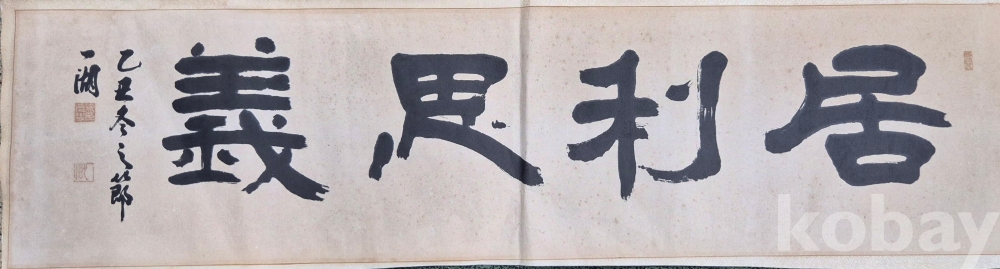 居利思義
乙丑冬之節
一湖
kobay